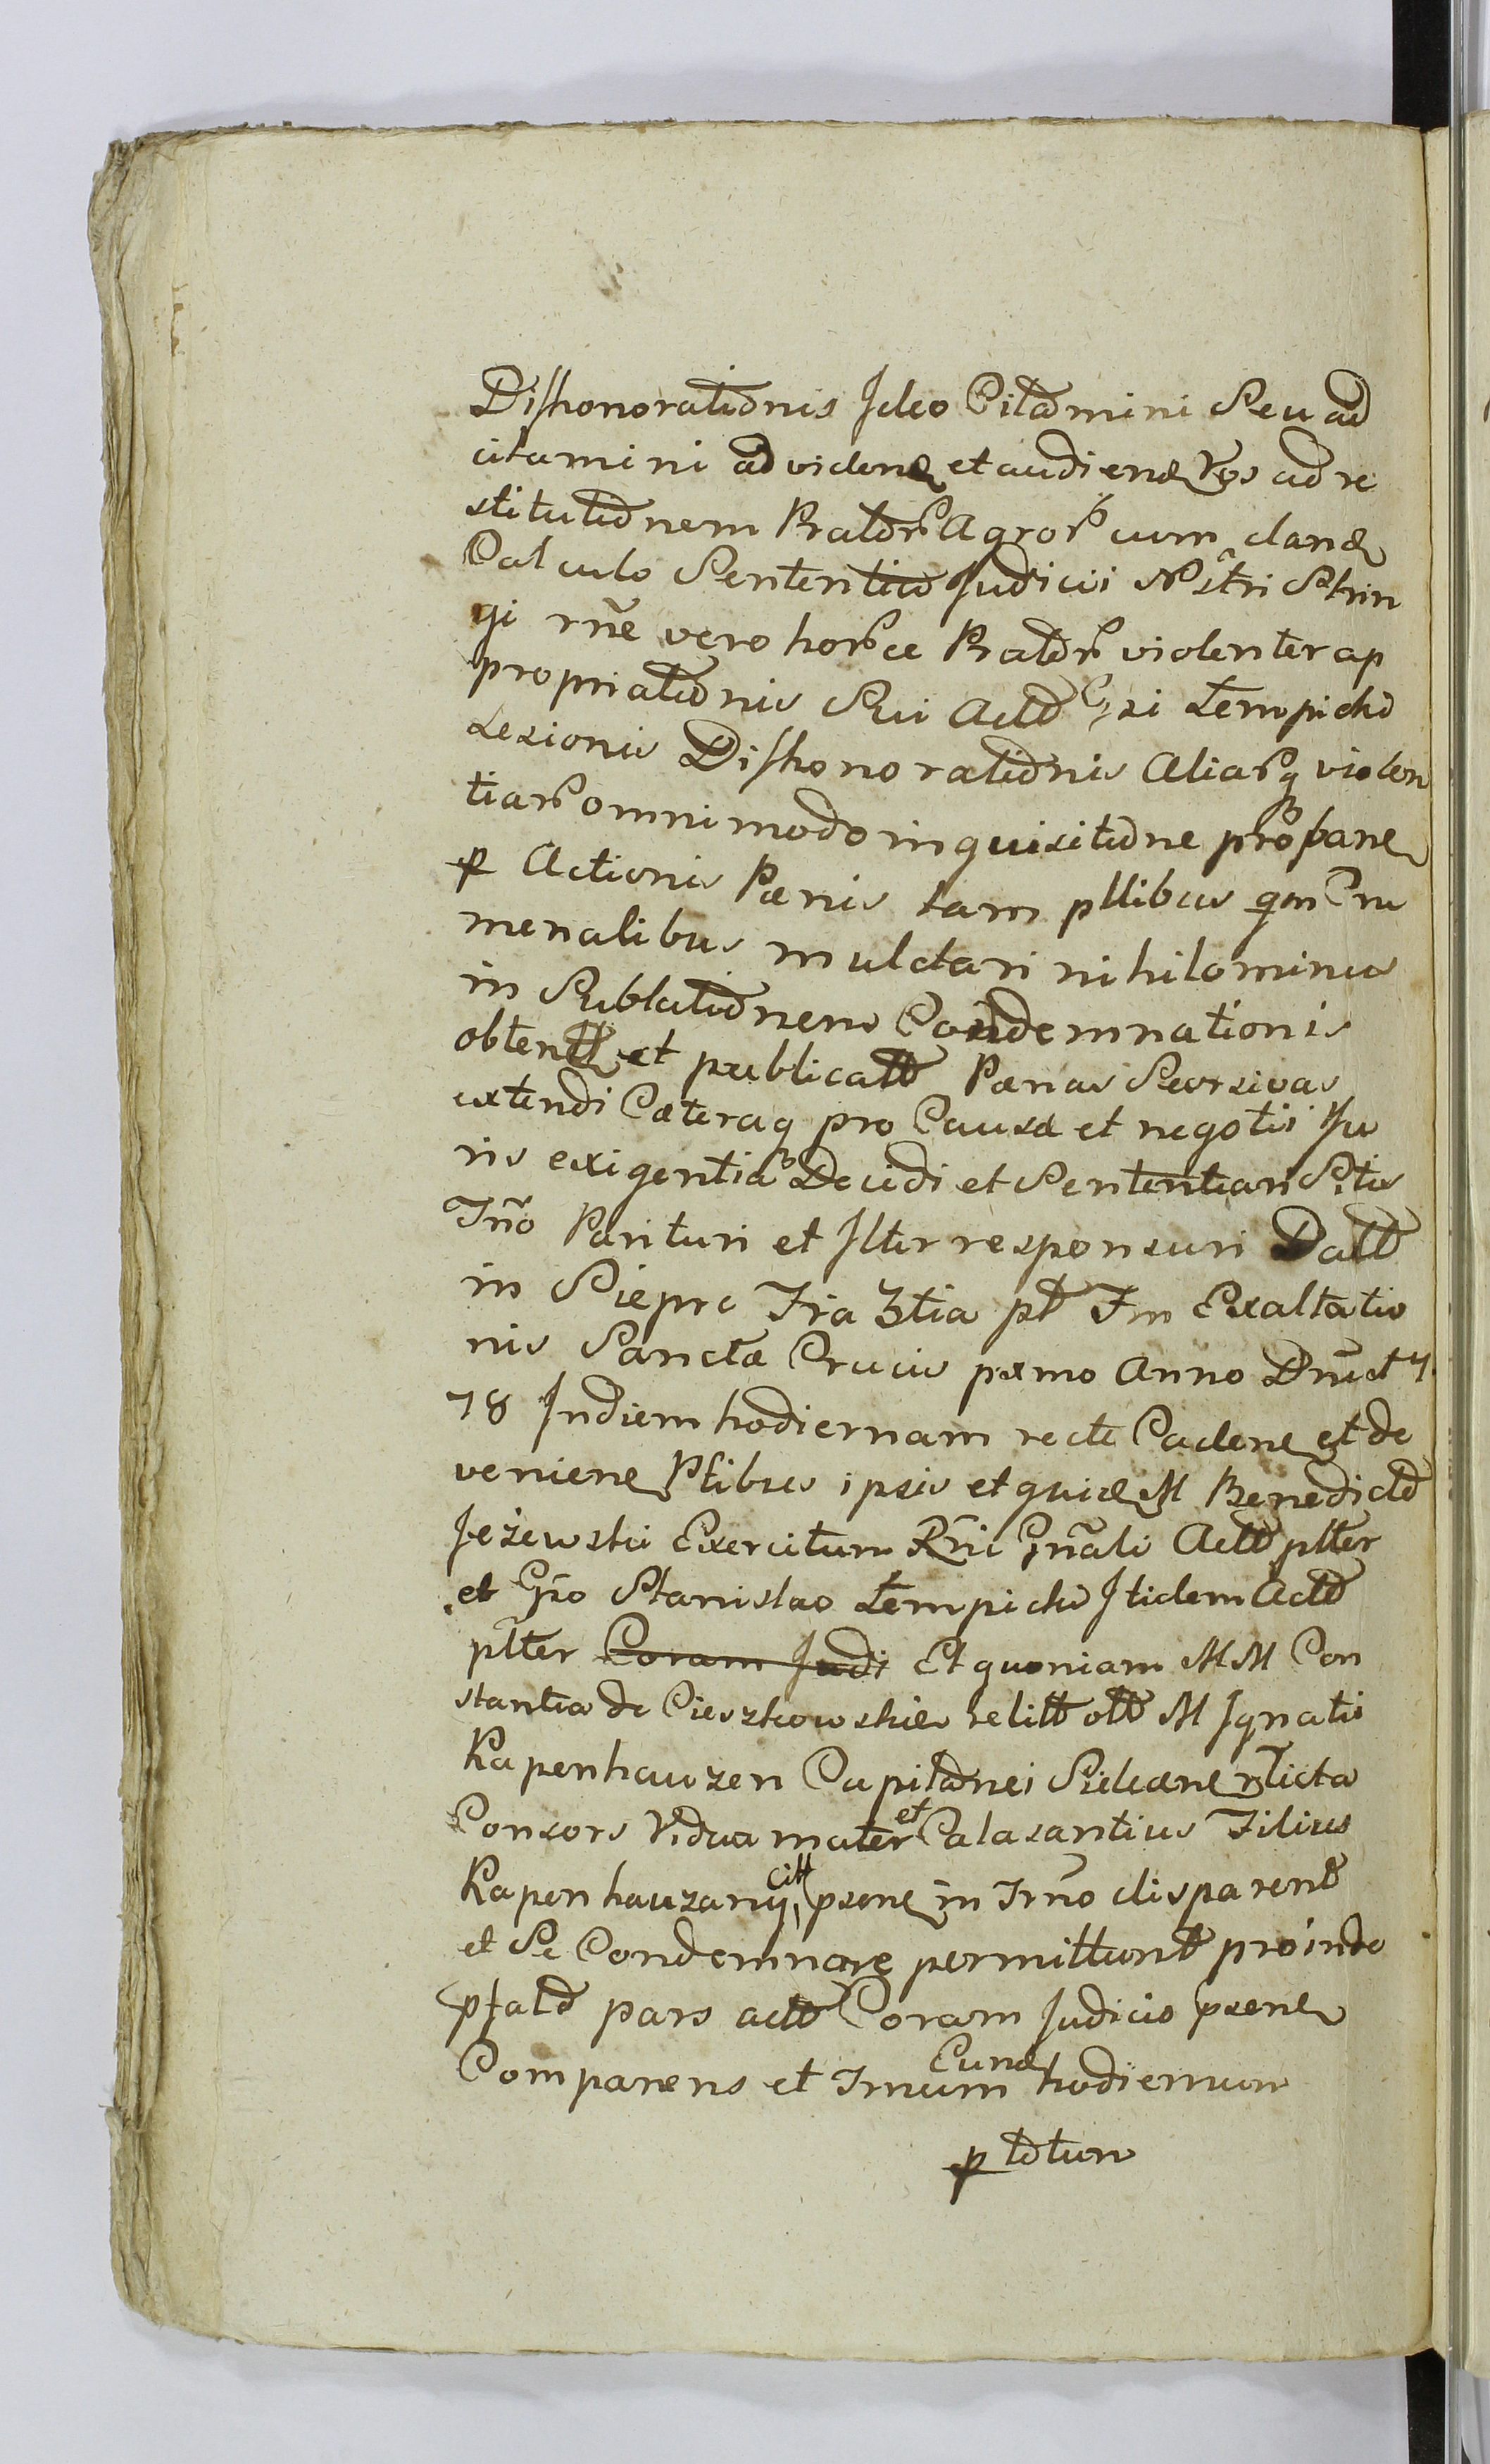 Dishonorationis Ideo Citamini Seu ad
citamini ad videnđ et audienđ Vos ad re
stitutionem Pratorͫ Agrorͫ cum dando
Calculo Sententia Judicii Nostri Strin
gi rñe vero horͫce Pratorͫ violenter ap
propriationis Sui Actoris Łempicki
Lesionis Dishonorationis Aliarͫq violen
tiarͫ omnimodo inquisitione probane
Actionis Pænis tam pllibus qm Cru
menalibus mulctari nihilominus
in Sublationem Condemnationis
obtentt et publicatt Pænas Seorsivas
extendi Cæteraq pro Causæ et negotii Ju
ris exigentia Decidi et Sententiari Sitis
Tr̃no Parituri et Jlter responsuri Datt
in Sieprc Fria 3tia pt Fm Exaltatio
nis Sanctæ Crucis pxmo Anno Dni 17
78 Indiem hodiernam recte Cadene et de
veniene Ptibus ipsis et quidem M Benedicto
Jeżewski Exercituum Rñi Gñali Actt plter
et Gño Stanislao Łempicki Itidem Actt
plter Coram Judi Et quoniam MM Con
stantia de Cieszkowskie relitt ott M Ignatii
Kapenhauzen Capitanei relicta
Consors Vidua mater et Calasantius Filius
Kapenhauzany citt psene in Trño disparent
et Se Condemnare permittunt proinde
pfata pars actt Coram Judicio psene
Comparens et Trnum Eund hodiernum